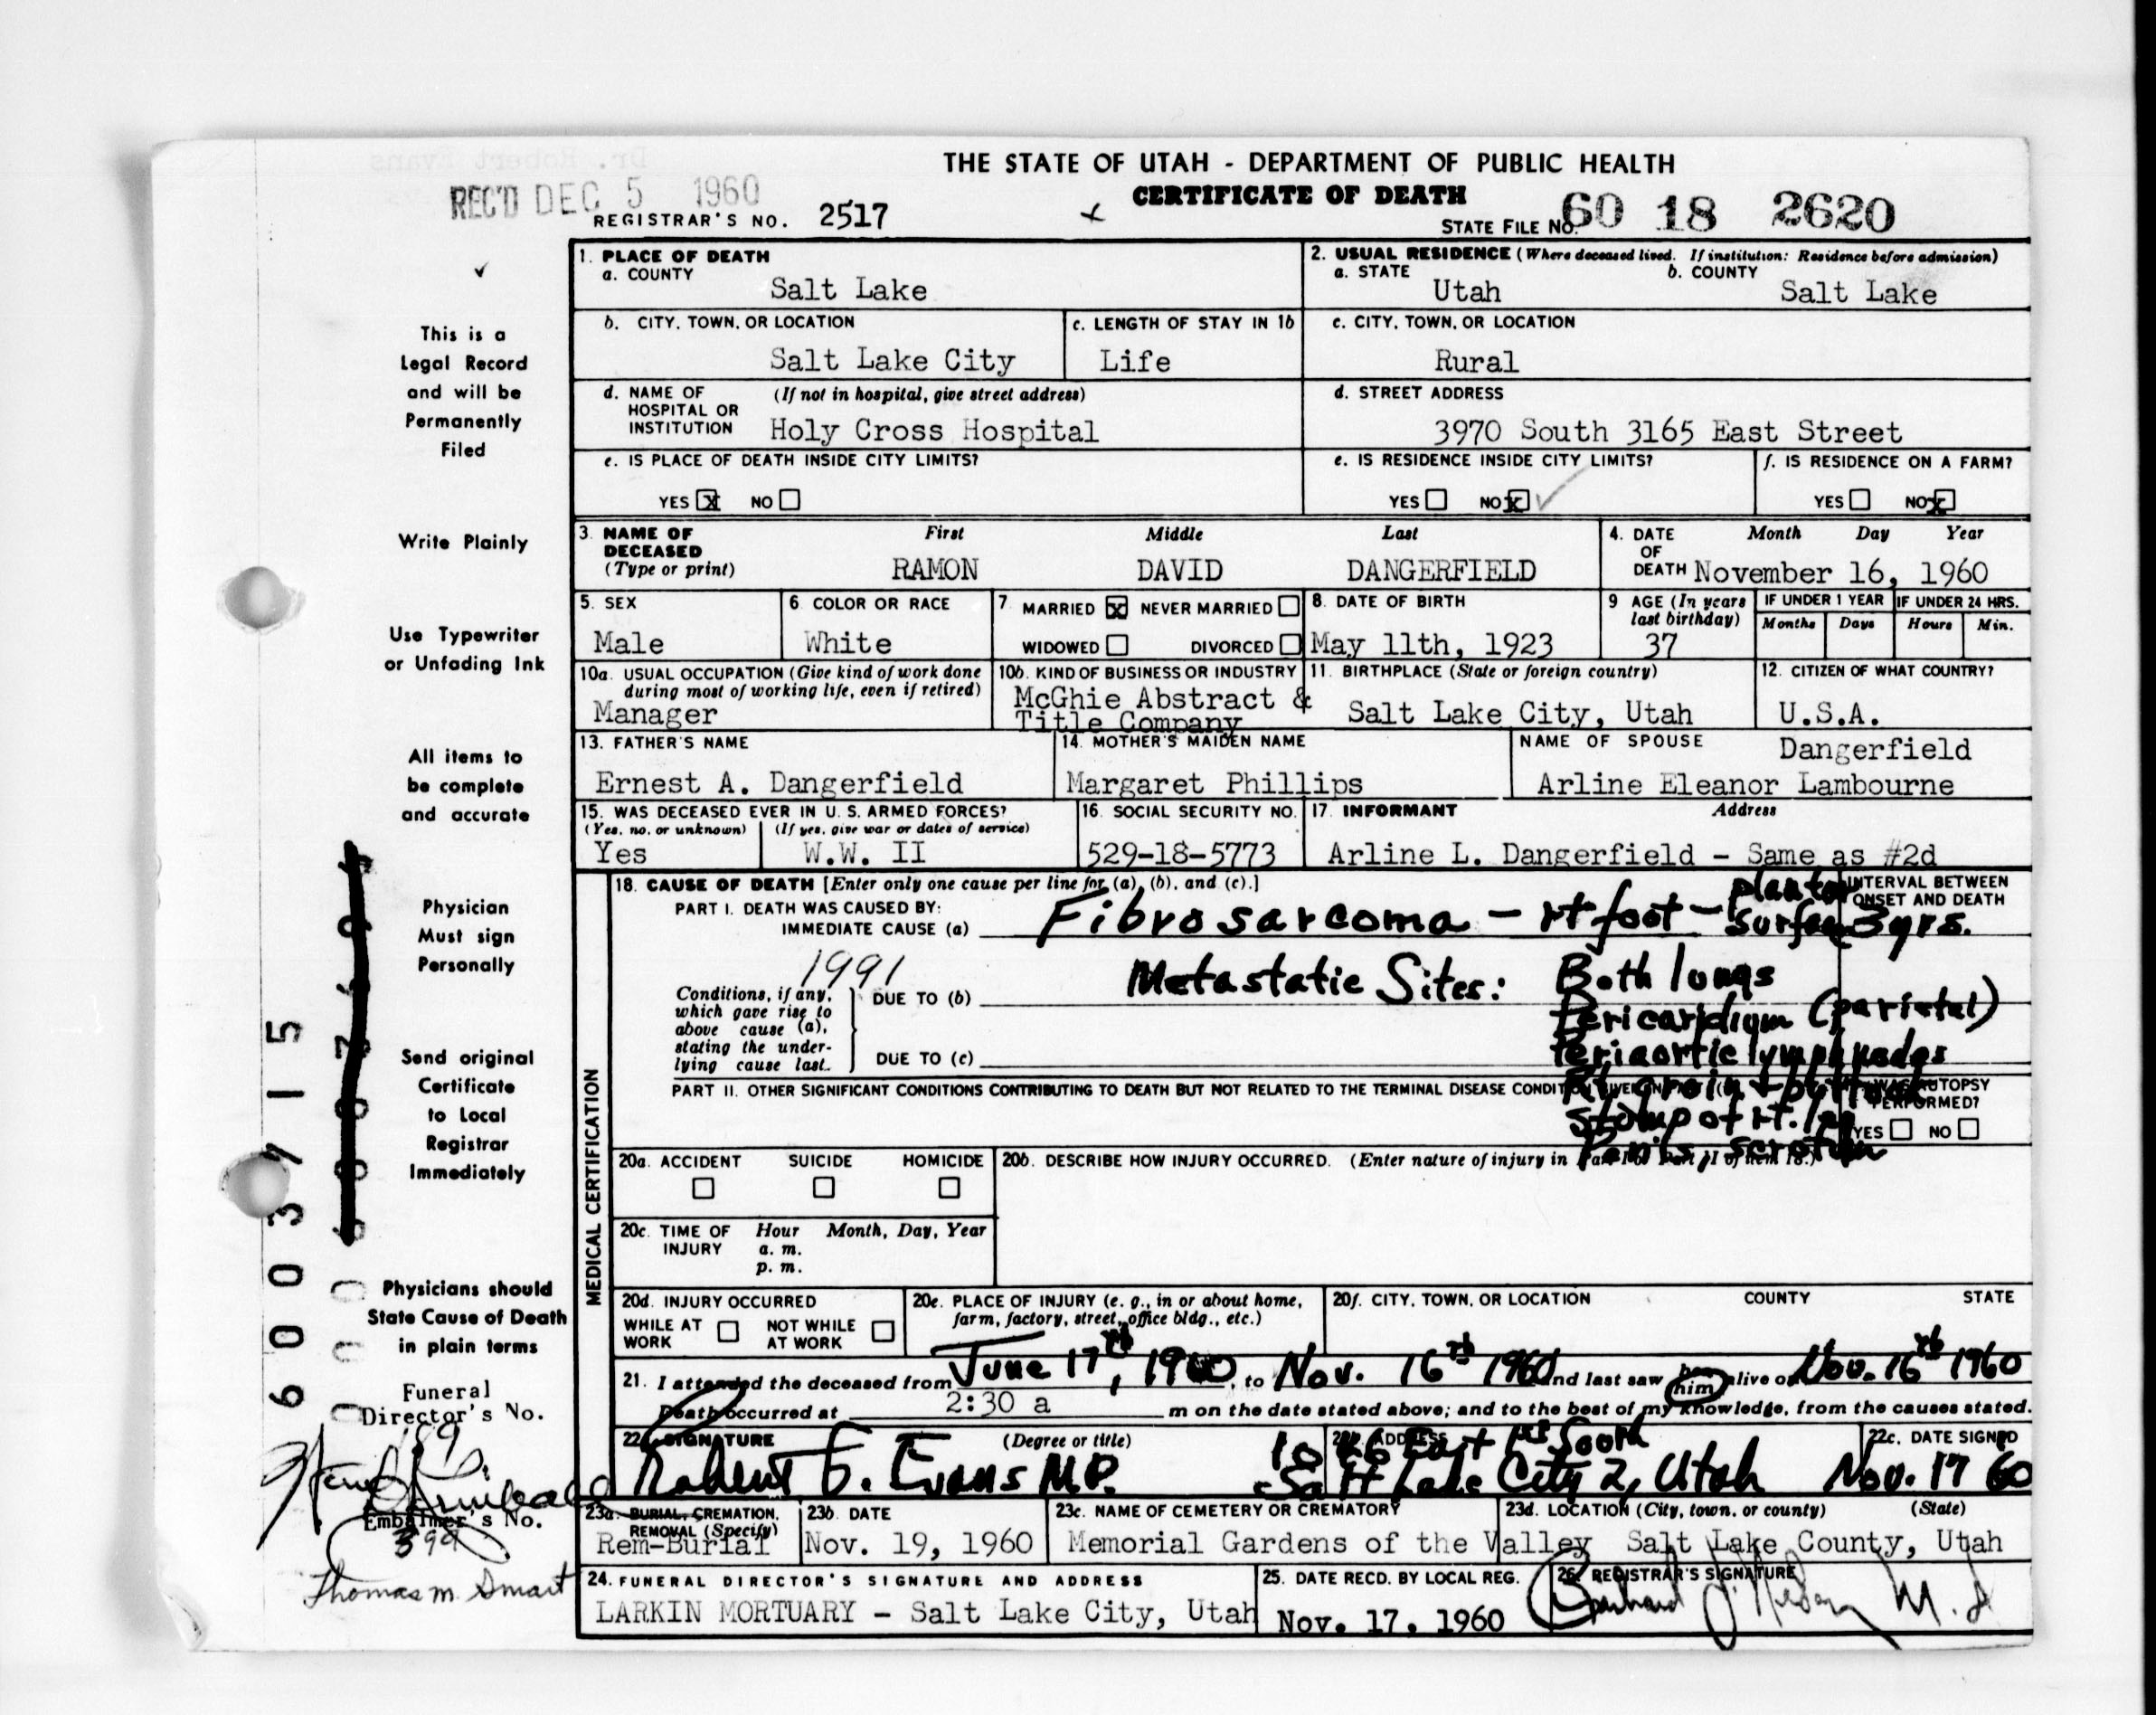 THE STATE OF UTAH - DEPARTMENT OF PUBLIC HEALTH
REC'D DEC 5 1960
CERTIFICATE OF DEATH
REGISTRAR'S NO. 2517
STATE FILE NO. 60 18 2620
1. PLACE OF DEATH
a. COUNTY
Salt Lake
2. USUAL RESIDENCE (Where deceased lived. If institution: Residence before admission)
a. STATE
Utah
b. COUNTY
Salt Lake
This is a
Legal Record
and will be
Permanently
Filed
b. CITY, TOWN, OR LOCATION
Salt Lake City
c. LENGTH OF STAY IN 1b
Life
c. CITY, TOWN, OR LOCATION
Rural
d. NAME OF HOSPITAL OR INSTITUTION
(If not in hospital, give street address)
Holy Cross Hospital
d. STREET ADDRESS
3970 South 3165 East Street
e. IS PLACE OF DEATH INSIDE CITY LIMITS?
YES X NO
e. IS RESIDENCE INSIDE CITY LIMITS?
YES NO X
f. IS RESIDENCE ON A FARM?
YES NO X
Write Plainly
3. NAME OF DECEASED (Type or print)
First Middle Last
RAMON DAVID DANGERFIELD
4. DATE OF DEATH
Month Day Year
November 16, 1960
Use Typewriter
or Unfading Ink
5. SEX
Male
6. COLOR OR RACE
White
7. MARRIED X NEVER MARRIED
WIDOWED DIVORCED
8. DATE OF BIRTH
May 11th, 1923
9 AGE (In years last birthday)
37
IF UNDER 1 YEAR
Months Days
IF UNDER 24 HRS.
Hours Min.
10a. USUAL OCCUPATION (Give kind of work done during most of working life, even if retired)
Manager
10b. KIND OF BUSINESS OR INDUSTRY
McGhie Abstract &
Title Company
11. BIRTHPLACE (State or foreign country)
Salt Lake City, Utah
12. CITIZEN OF WHAT COUNTRY?
U.S.A.
All items to
be complete
and accurate
13. FATHER'S NAME
Ernest A. Dangerfield
14. MOTHER'S MAIDEN NAME
Margaret Phillips
NAME OF SPOUSE
Dangerfield
Arline Eleanor Lambourne
15. WAS DECEASED EVER IN U. S. ARMED FORCES?
(Yes, no, or unknown) (If yes, give war or dates of service)
Yes W.W. II
16. SOCIAL SECURITY NO.
529-18-5773
17. INFORMANT Address
Arline L. Dangerfield - Same as #2d
Physician
Must sign
Personally
MEDICAL CERTIFICATION
18. CAUSE OF DEATH [Enter only one cause per line for (a), (b), and (c).]
PART I. DEATH WAS CAUSED BY:
IMMEDIATE CAUSE (a)
Fibrosarcoma - rt foot - plantar
surface
INTERVAL BETWEEN
ONSET AND DEATH
3 yrs.
1991
Conditions, if any,
which gave rise to
above cause (a),
stating the under-
lying cause last.
DUE TO (b)
DUE TO (c)
Metastatic Sites: Both lungs
Pericardium (parietal)
Periaortic lymph nodes
Rt. groin + buttock
Stump of rt. leg
Penis, scrotum
Send original
Certificate
to Local
Registrar
Immediately
PART II. OTHER SIGNIFICANT CONDITIONS CONTRIBUTING TO DEATH BUT NOT RELATED TO THE TERMINAL DISEASE CONDITION
WAS AUTOPSY
PERFORMED?
YES NO
20a. ACCIDENT SUICIDE HOMICIDE
20b. DESCRIBE HOW INJURY OCCURRED. (Enter nature of injury in Part I or Part II of item 18.)
20c. TIME OF INJURY
Hour Month, Day, Year
a. m.
p. m.
6003715
Physicians should
State Cause of Death
in plain terms
20d. INJURY OCCURRED
WHILE AT WORK
NOT WHILE AT WORK
20e. PLACE OF INJURY (e. g., in or about home,
farm, factory, street, office bldg., etc.)
20f. CITY, TOWN, OR LOCATION COUNTY STATE
21. I attended the deceased from June 17th, 1960, to Nov. 16th 1960 and last saw him alive on Nov. 16th 1960
Death occurred at 2:30 a m on the date stated above; and to the best of my knowledge, from the causes stated.
Funeral
Director's No.
22a. SIGNATURE (Degree or title)
Robert G. Evans M.D.
22b. ADDRESS
East 1st South
Salt Lake City 2, Utah
22c. DATE SIGNED
Nov. 17 60
Embalmer's No.
399
Thomas M. Smart
23a. BURIAL, CREMATION,
REMOVAL (Specify)
Rem-Burial
23b. DATE
Nov. 19, 1960
23c. NAME OF CEMETERY OR CREMATORY
Memorial Gardens of the Valley
23d. LOCATION (City, town, or county) (State)
Salt Lake County, Utah
24. FUNERAL DIRECTOR'S SIGNATURE AND ADDRESS
LARKIN MORTUARY - Salt Lake City, Utah
25. DATE RECD. BY LOCAL REG.
Nov. 17, 1960
26. REGISTRAR'S SIGNATURE